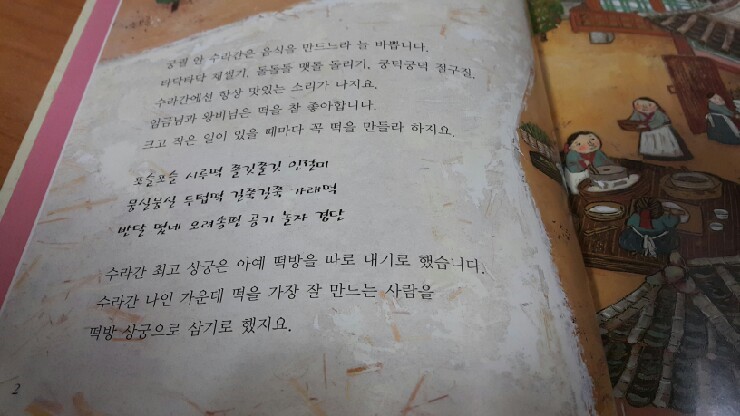 궁궐 안 수라간은 음식을 만드느라 늘 바쁩니다.
타닥타닥 채썰기, 돌돌돌 맷돌 돌리기, 쿵덕쿵덕 절구질,
수라간에선 항상 맛있는 소리가 나지요.
임금님과 왕비님은 떡을 참 좋아합니다.
크고 작은 일이 있을 때마다 꼭 떡을 만들라 하지요.
포슬포슬 시루떡 쫄깃쫄깃 인절미
뭉실뭉실 두텁떡 길쭉길쭉 가래떡
반달 떴네 오려송편 공기 놀자 경단
수라간 최고 상궁은 아예 떡방을 따로 내기로 했습니다.
수라간 나인 가운데 떡을 가장 잘 만드는 사람을
떡방 상궁으로 삼기로 했지요.
2